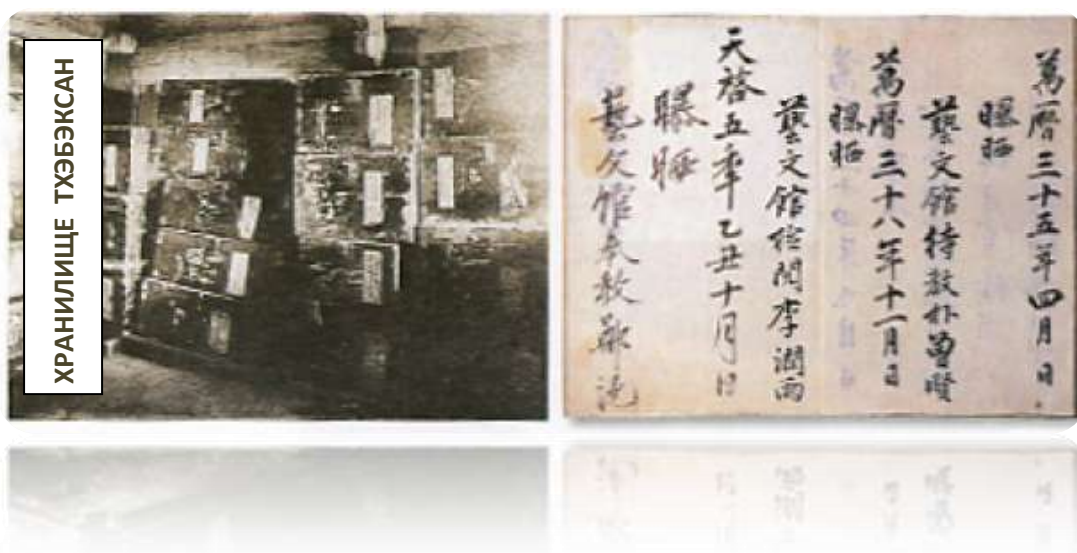 ХРАНИЛИЩЕ ТХЭБЭКСАН
萬曆三十五年四月日
曝晒
藝文館待敎朴曾賢
萬曆三十八年十一月日
曝晒
藝文館檢閱李潤雨
天啓五年乙丑十月日
曝晒
藝文館奉敎